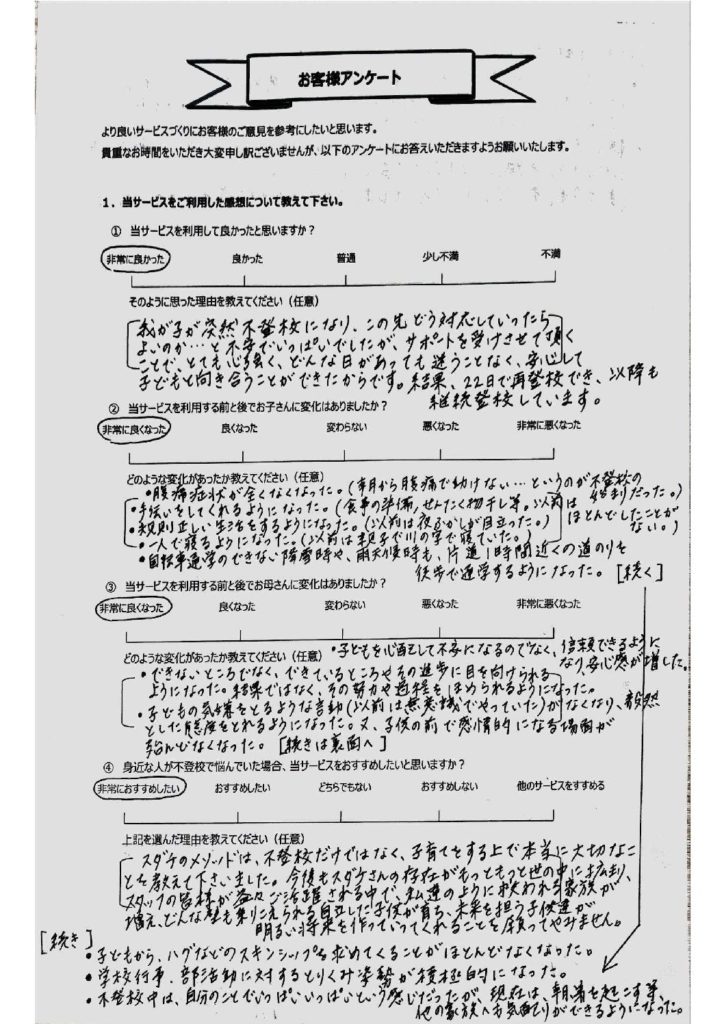 お客様アンケート
より良いサービスづくりにお客様のご意見を参考にしたいと思います。
貴重なお時間をいただき大変申し訳ございませんが、以下のアンケートにお答えいただきますようお願いいたします。
1．当サービスをご利用した感想について教えて下さい。
① 当サービスを利用して良かったと思いますか？
非常に良かった 良かった 普通 少し不満 不満
そのように思った理由を教えてください（任意）
我が子が突然不登校になり、この先どう対応していったら
よいのか…と不安でいっぱいでしたが、サポートを受けさせて頂く
ことで、とても心強く、どんな日があっても迷うことなく、安心して
子どもと向き合うことができたからです。結果、22日で再登校でき、以降も
継続登校しています。
② 当サービスを利用する前と後でお子さんに変化はありましたか？
非常に良くなった 良くなった 変わらない 悪くなった 非常に悪くなった
どのような変化があったか教えてください（任意）
・腹痛症状が全くなくなった。（毎月から腹痛で動けない…というのが不登校の
始まりだった。）
・手伝いをしてくれるようになった。（食事の準備，せんたく物干し等。以前は
ほとんどしたことがない。）
・規則正しい生活をするようになった。（以前は夜ふかしが目立った。）
・一人で寝るようになった。（以前は親子で川の字で寝ていた。）
・自転車通学のできない降雪時や、雨天候時も、片道1時間近くの道のりを
徒歩で通学するようになった。［続く］
③ 当サービスを利用する前と後でお母さんに変化はありましたか？
非常に良くなった 良くなった 変わらない 悪くなった 非常に悪くなった
どのような変化があったか教えてください（任意）
・子どもを心配して不安になるのでなく、信頼できるように
なり、安心感が増した。
・できないところでなく、できているところやその進歩に目を向けられる
ようになった。結果ではなく、その努力や過程をほめられるようになった。
・子どもの気嫌をとるような言動（以前は無意識でやっていた）がなくなり、毅然
とした態度をとれるようになった。又、子供の前で感情的になる場面が
殆んどなくなった。［続きは裏面へ］
④ 身近な人が不登校で悩んでいた場合、当サービスをおすすめしたいと思いますか？
非常におすすめしたい おすすめしたい どちらでもない おすすめしない 他のサービスをすすめる
上記を選んだ理由を教えてください（任意）
スダチのメソッドは、不登校だけではなく、子育てをする上で本当に大切なこ
とを教えて下さいました。今後もスダチさんの存在がもっともっと世の中に広まり、
スタッフの皆様が益々ご活躍される中で、私達のように救われる家族が
増え、どんな壁も乗りこえられる自立した子供が育ち、未来を担う子供達が
明るい将来を作っていってくれることを願ってやみません。
［続き］
・子どもから、ハグなどのスキンシップを求めてくることがほとんどなくなった。
・学校行事、部活動に対するとりくみ姿勢が積極的になった。
・不登校中は、自分のことでいっぱいいっぱいという感じだったが、現在は、朝、弟を起こす等、
他の家族へも気配りができるようになった。